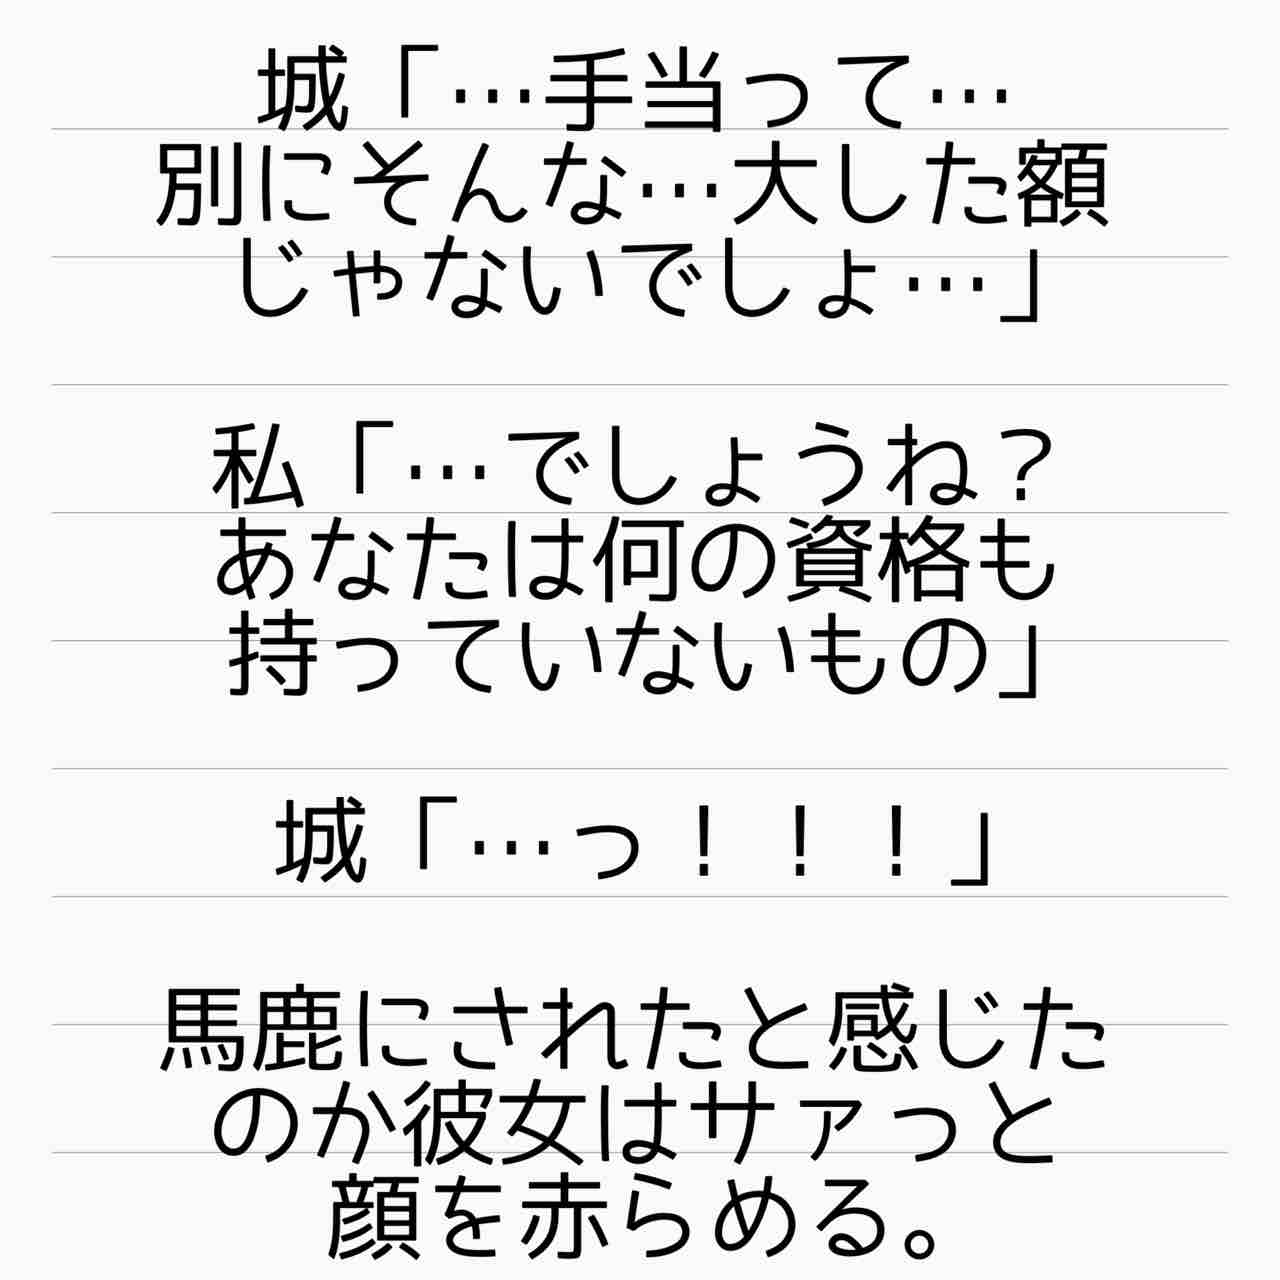 城「…手当って…
別にそんな…大した額
じゃないでしょ…」
私「…でしょうね？
あなたは何の資格も
持っていないもの」
城「…っ！！！」
馬鹿にされたと感じた
のか彼女はサァっと
顔を赤らめる。